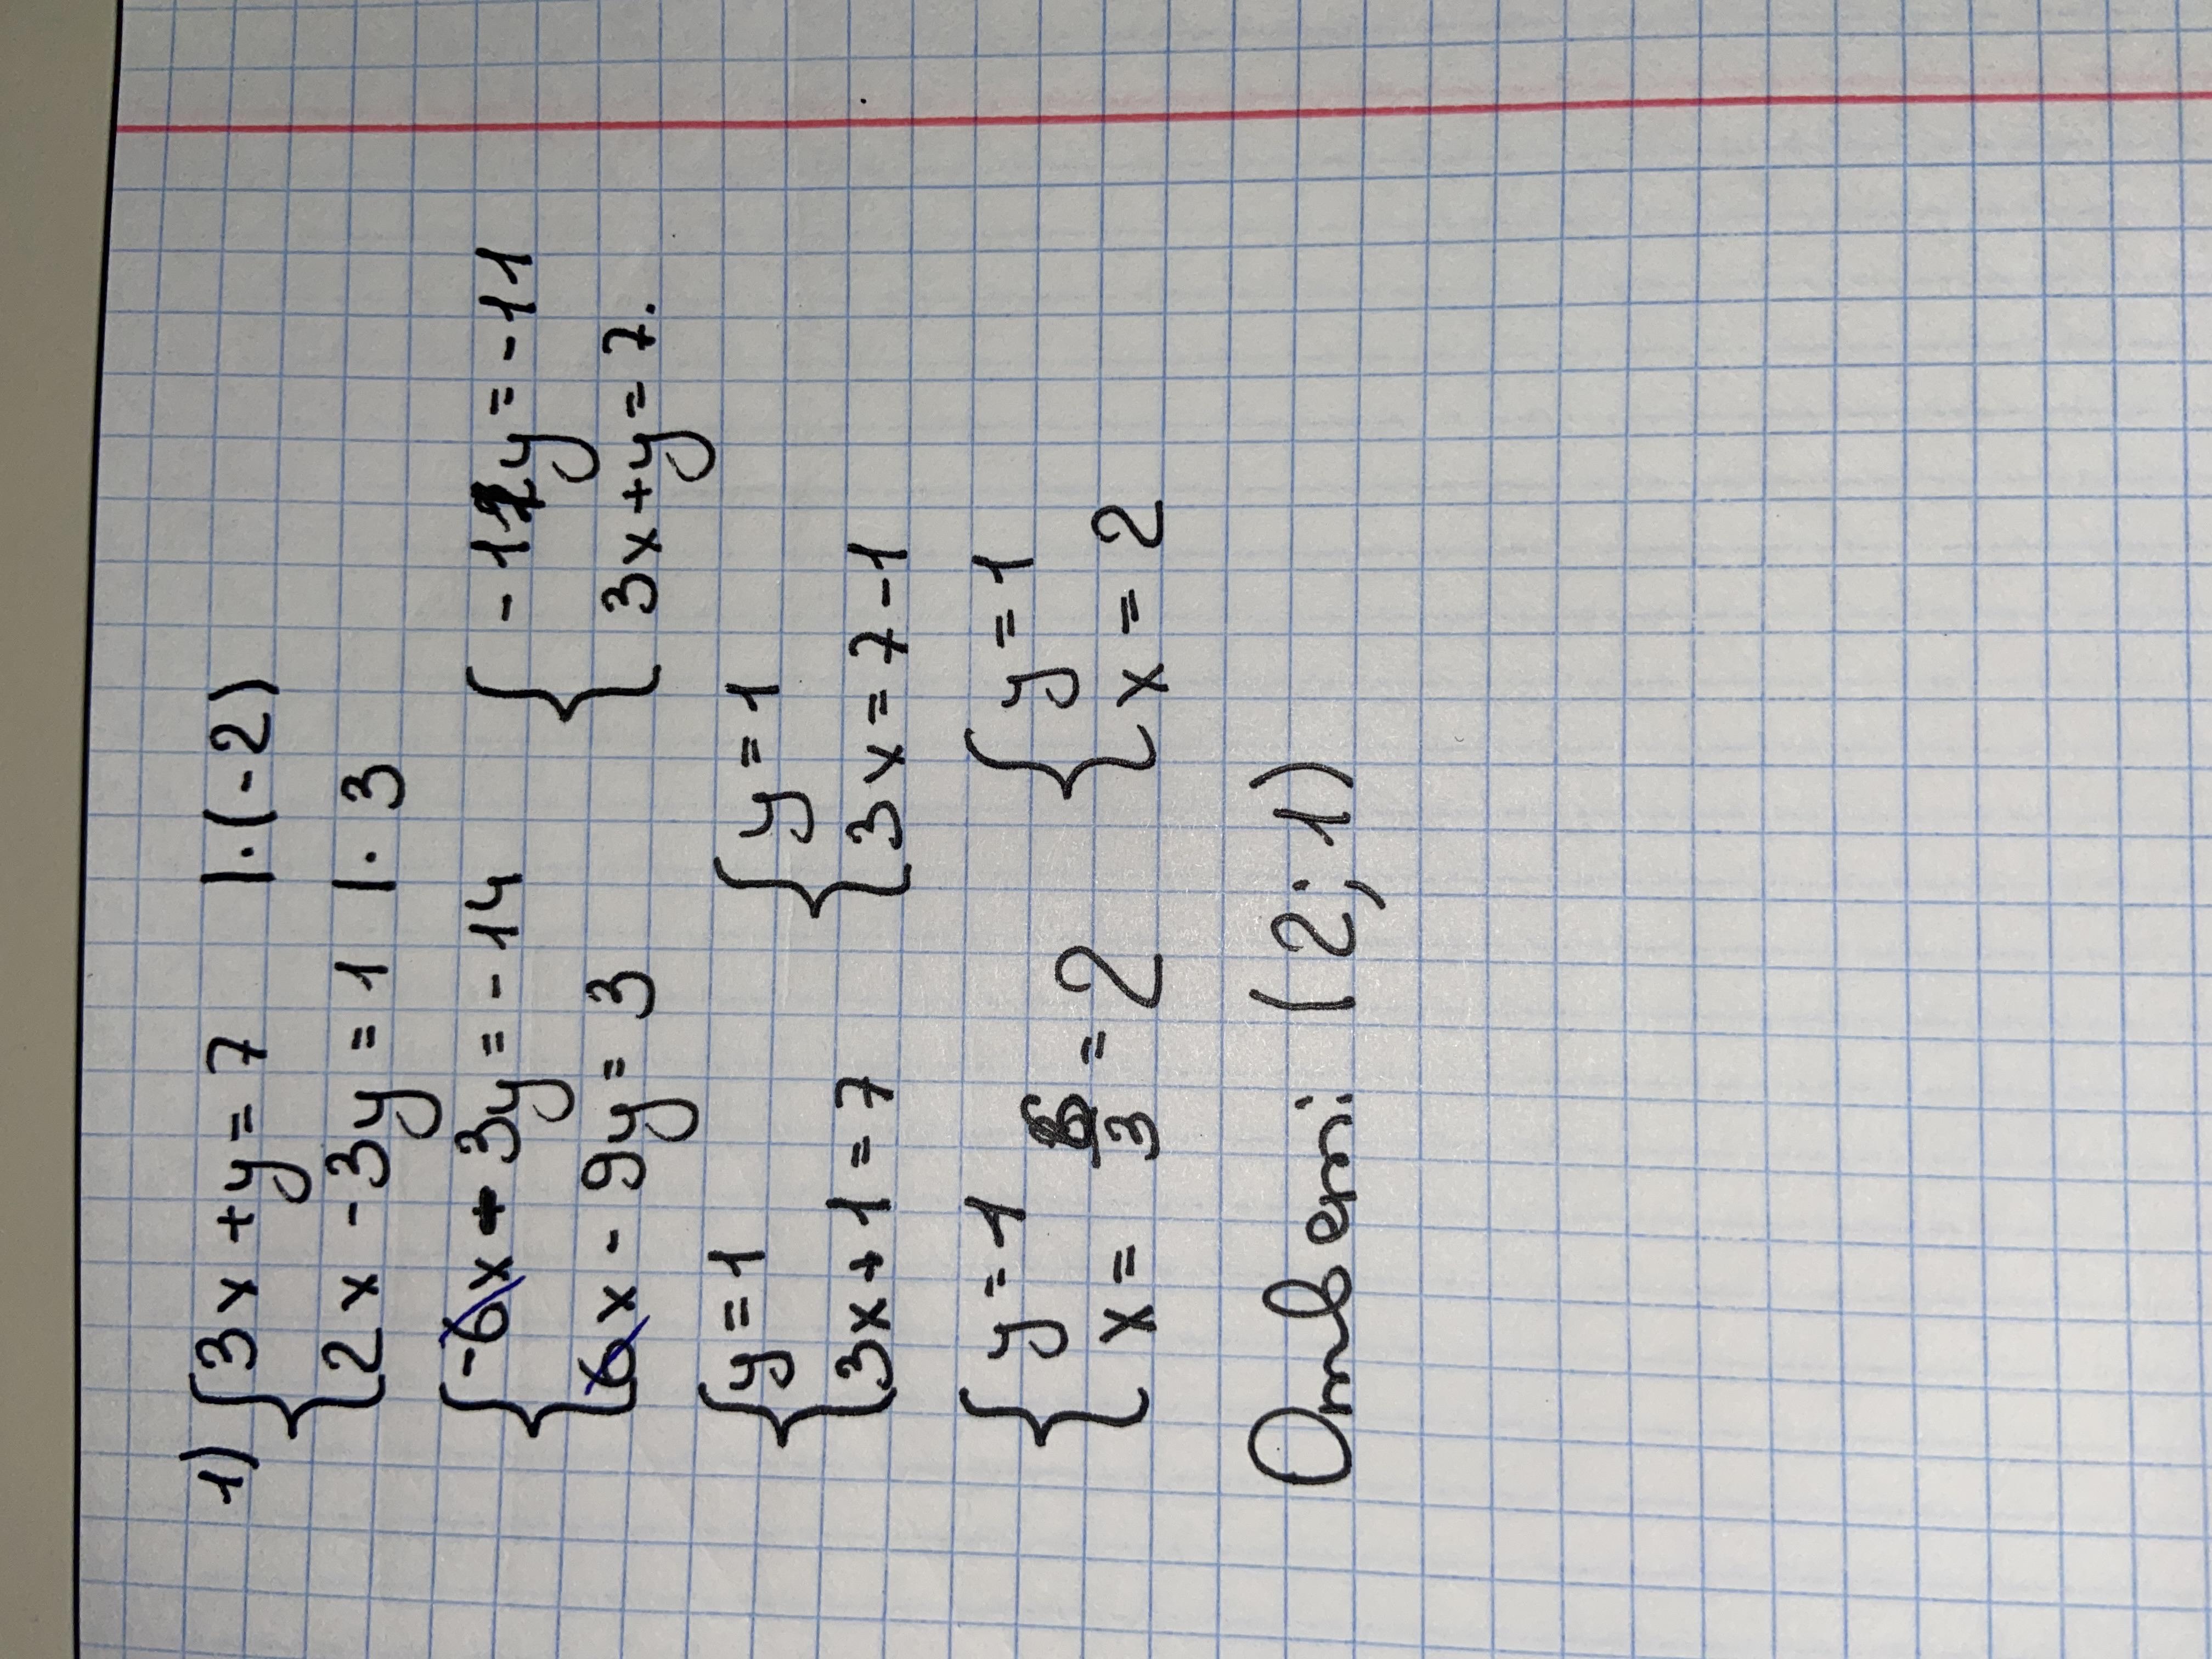 1) { 3x + y = 7 | · (-2)
2x - 3y = 1 | · 3
{ -6x - 3y = -14
6x - 9y = 3
{ -11y = -11
3x + y = 7.
{ y = 1
3x + 1 = 7
{ y = 1
3x = 7 - 1
{ y = 1
x = 6/3 = 2
{ y = 1
x = 2
Ответ: (2; 1)